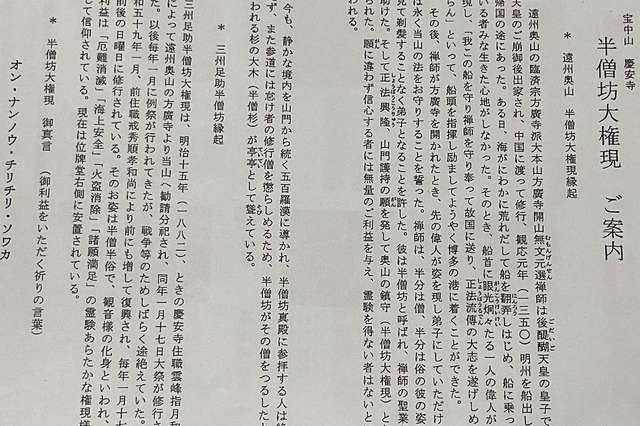 宝中山　慶安寺
半僧坊大権現　ご案内
＊　遠州奥山　半僧坊大権現縁起
遠州奥山の臨済宗方廣寺派大本山方廣寺開山無文元選禅師は後醍醐天皇の皇子で
天皇のご崩御後出家され、中国に渡って修行、観応元年（一三五〇）明州を船出し
帰国の途にあった。ある日、海がにわかに荒れだして船を翻弄しはじめ、船に乗っ
ている者みな生きた心地がしなかった。そのとき、船首に眼光炯々たる一人の偉人が
現し、「我この船を守り禅師を守り奉って故国に送り、正法流傳の大志を遂げしめ
らん」といって、船頭を指揮し励ましてようやく博多の港に着くことができた。
その後、禅師が方廣寺を開かれたとき、先の偉人が姿を現し弟子にしていただけ
は永く当山の法をお守りすることを誓った。禅師は、半分は僧、半分は俗の彼の姿
見て剃髪することなく弟子となることを許した。彼は半僧坊と呼ばれ、禅師の聖業
助けた。そして正法興隆、山門護持の願を発して奥山の鎮守（半僧坊大権現）と
られた。願に違わず信心する者には無量のご利益を与え、霊験を得ない者はないと
今も、静かな境内を山門から続く五百羅漢に導かれ、半僧坊真殿に参拝する人は絶
ず、また参道には怠け者の修行僧を懲らしめるため、半僧坊がその僧をつるしたし
われる杉の大木（半僧杉）が亭亭として聳えている。
＊　三州足助半僧坊縁起
三州足助半僧坊大権現は、明治十五年（一八八二）、ときの慶安寺住職雲峰指月和
によって遠州奥山の方廣寺より当山へ勧請分祀され、同年一月十七日大祭が修行さ
た。以後毎年一月に例祭が行われてきたが、戦争等のためしばらく途絶えていた。
和五十九年一月、前住職戒秀順孝和尚により前にも増して復興され、毎年一月十七
前後の日曜日に修行されている。そのお姿は半僧半俗で、観音様の化身といわれ、
利益は「厄難消滅」「海上安全」「火盗消除」「諸願満足」の霊験あらたかな権現様
して信仰されている。現在は位牌堂右側に安置されている。
＊　半僧坊大権現　御真言　（御利益をいただく祈りの言葉）
オン・ナンノウ・チリチリ・ソワカ